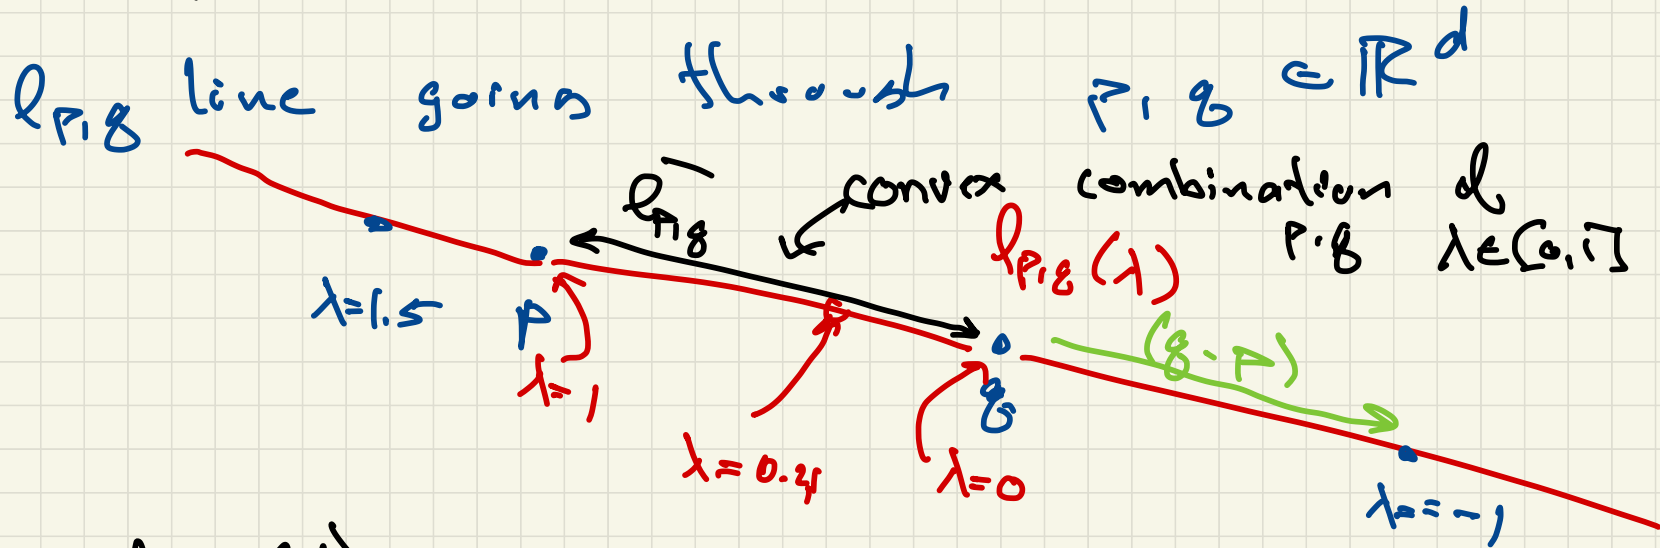 ℓ_{p,q} line going through p, q ∈ ℝ^d
ℓ̄_{p,q} convex combination of
p,q λ∈[0,1]
ℓ_{p,q}(λ)
λ=1.5 p (q-p)
λ=1 q
λ=0.4 λ=0
λ=-1